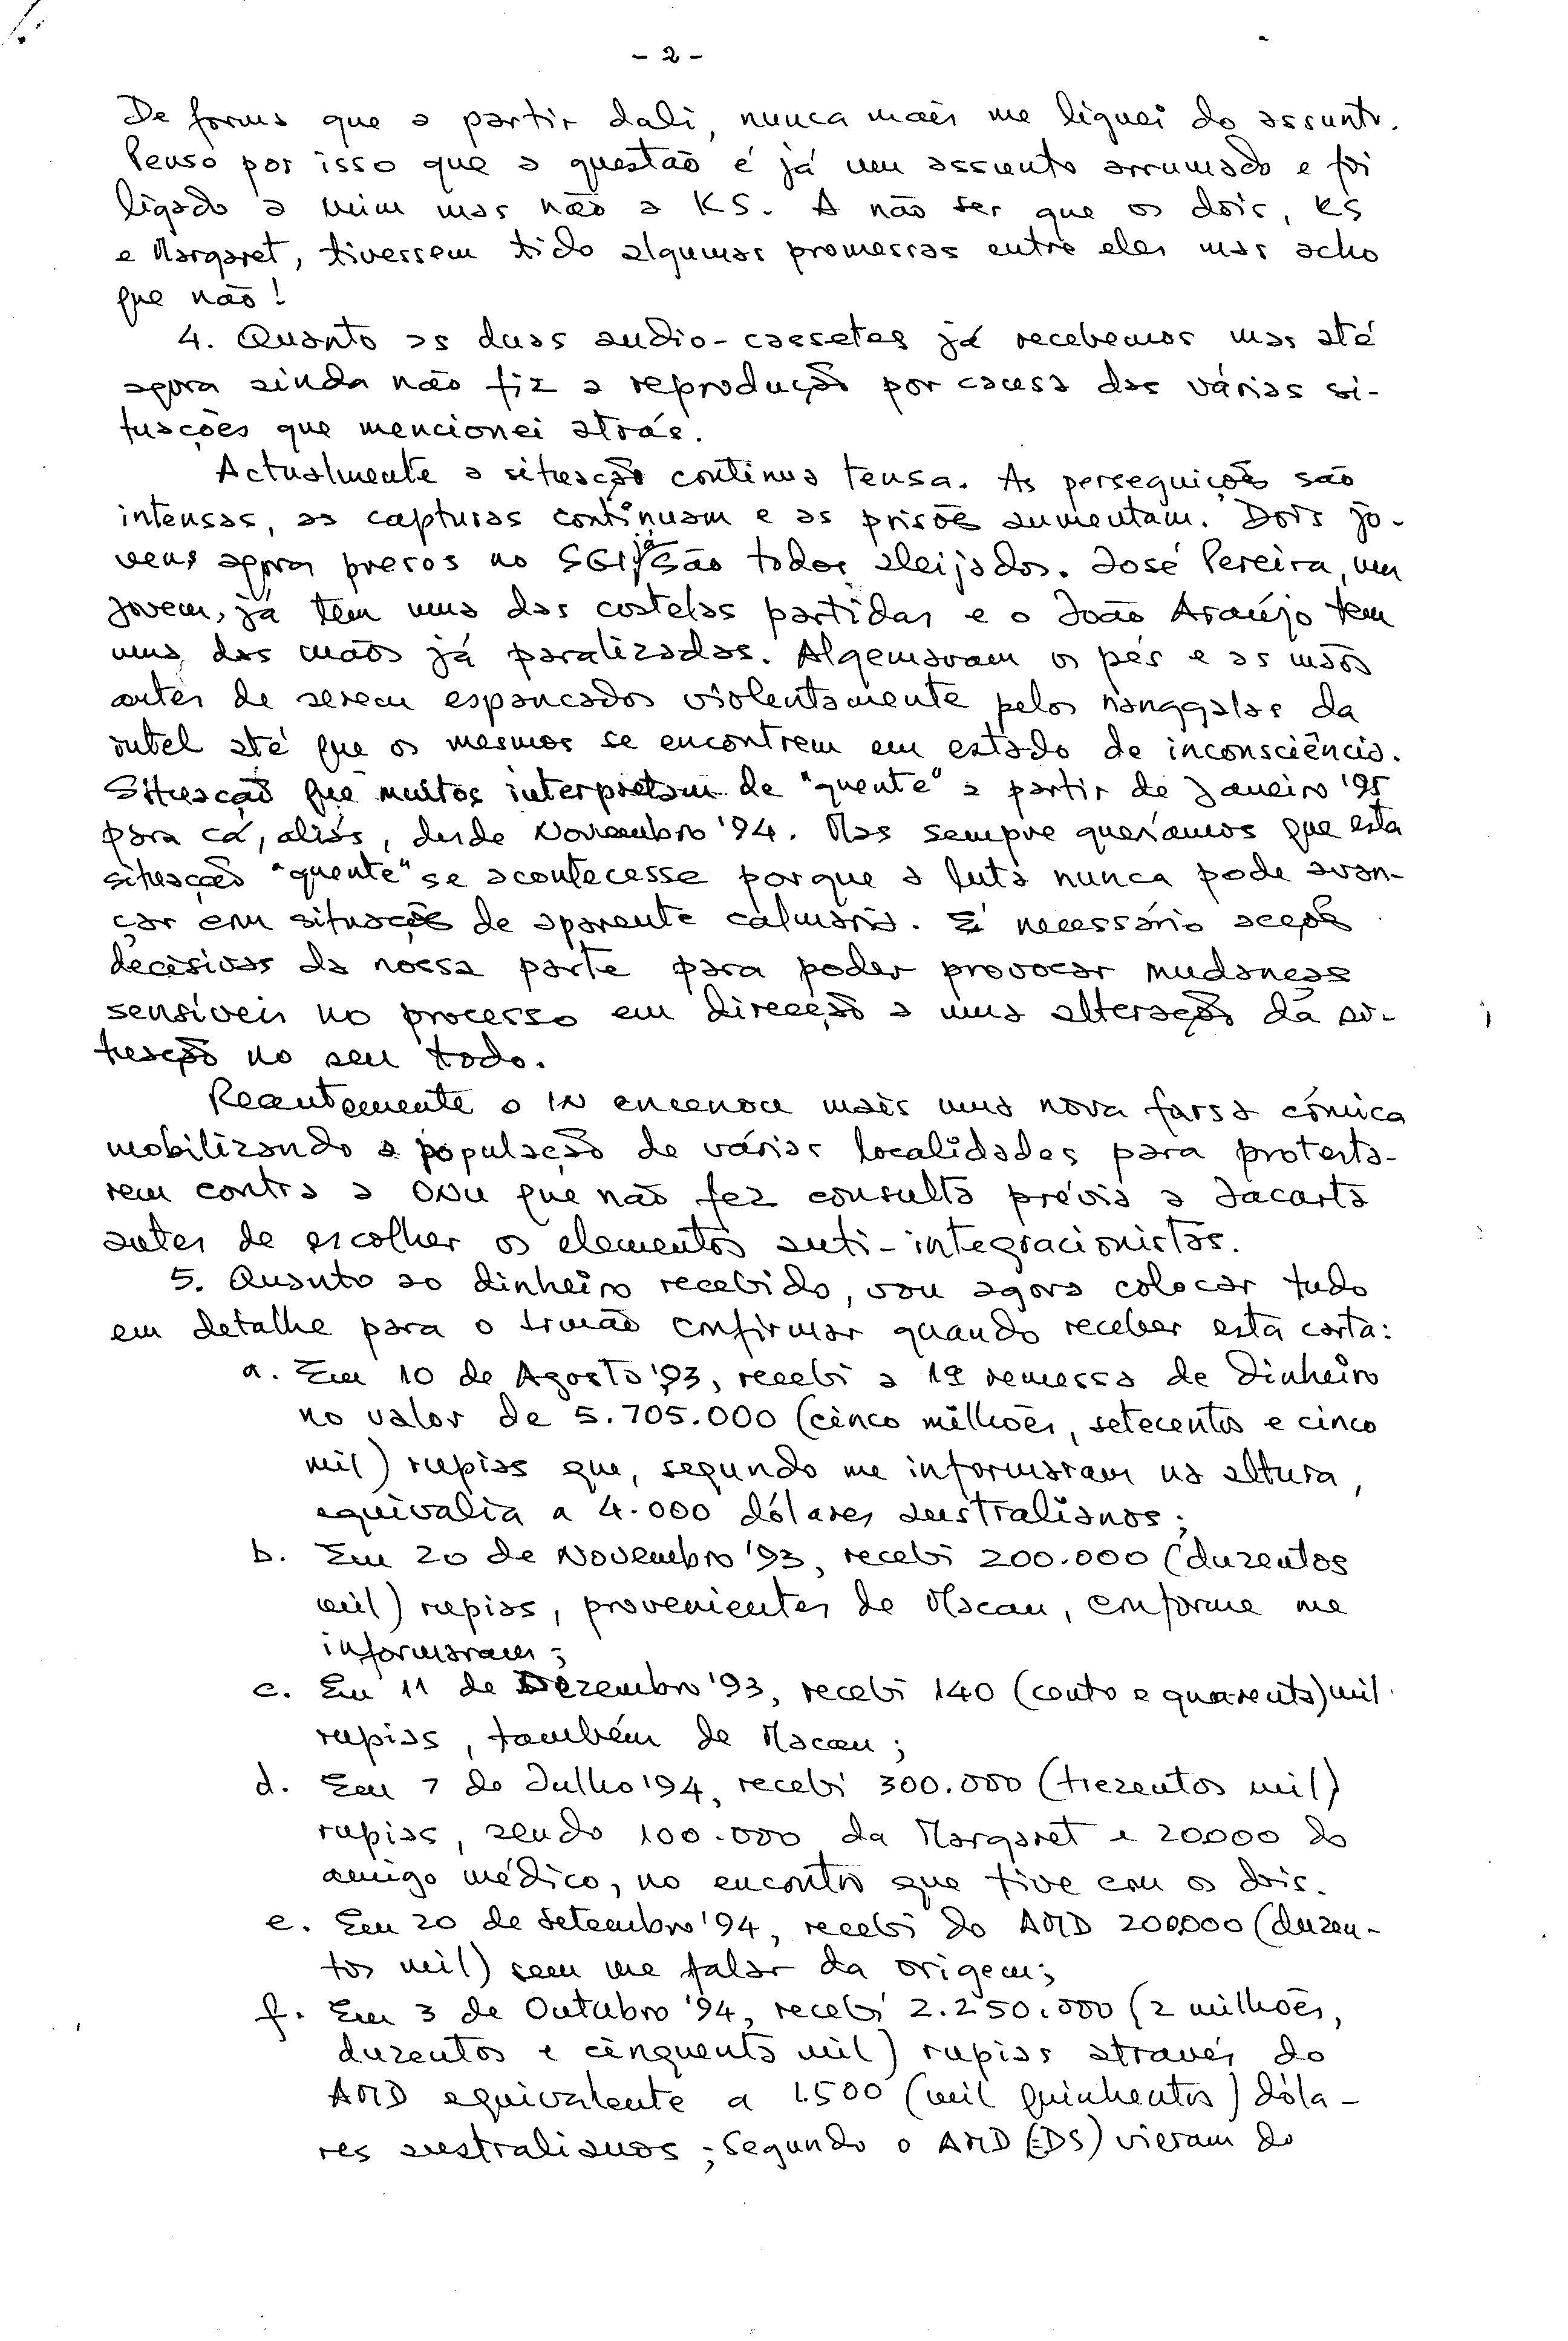 - 2 -
De forma que a partir dali, nunca mais me liguei do assunto.
Penso por isso que a questão é já um assunto arrumado e foi
ligado a mim mas não a KS. A não ser que os dois, KS
e Margaret, tivessem tido algumas promessas entre eles mas acho
que não!
4. Quanto as duas audio-cassetes já recebemos mas até
agora ainda não fiz a reprodução por causa das várias si-
tuações que mencionei atrás.
Actualmente a situação continua tensa. As perseguições são
intensas, as capturas continuam e as prisões aumentam. Dois jo-
vens agora presos no SGI já são todos aleijados. José Pereira, um
jovem, já tem uma das costelas partidas e o João Araújo tem
uma das mãos já paralizadas. Algemavam os pés e as mãos
antes de serem espancados violentamente pelos nanggalas da
intel até que os mesmos se encontrem em estado de inconsciência.
Situação que muitos interpretam de "quente" a partir de Janeiro '95
para cá, aliás, desde Novembro '94. Mas sempre queríamos que esta
situação "quente" se acontecesse porque a luta nunca pode avan-
çar em situação de aparente calmaria. É necessário acções
decisivas da nossa parte para poder provocar mudanças
sensíveis no processo em direcção a uma alteração da si-
tuação no seu todo.
Recentemente o IN encenou mais uma nova farsa cómica
mobilizando a população de várias localidades para protesta-
rem contra a ONU que não fez consulta prévia a Jacarta
antes de escolher os elementos anti-integracionistas.
5. Quanto ao dinheiro recebido, vou agora colocar tudo
em detalhe para o Irmão confirmar quando receber esta carta:
a. Em 10 de Agosto '93, recebi a 1ª remessa de dinheiro
no valor de 5.705.000 (cinco milhões, setecentos e cinco
mil) rupias que, segundo me informaram na altura,
equivalia a 4.000 dólares australianos;
b. Em 20 de Novembro '93, recebi 200.000 (duzentos
mil) rupias, provenientes de Macau, conforme me
informaram;
c. Em 11 de Dezembro '93, recebi 140 (cento e quarenta) mil
rupias, também de Macau;
d. Em 7 de Julho '94, recebi 300.000 (trezentos mil)
rupias, sendo 100.000 da Margaret e 20000 do
amigo médico, no encontro que tive com os dois.
e. Em 20 de Setembro '94, recebi do AMD 200000 (duzen-
tos mil) sem me falar da origem;
f. Em 3 de Outubro '94, recebi 2.250.000 (2 milhões,
duzentos e cinquenta mil) rupias através do
AMD equivalente a 1.500 (mil quinhentos) dóla-
res australianos; Segundo o AMD (DS) vieram do